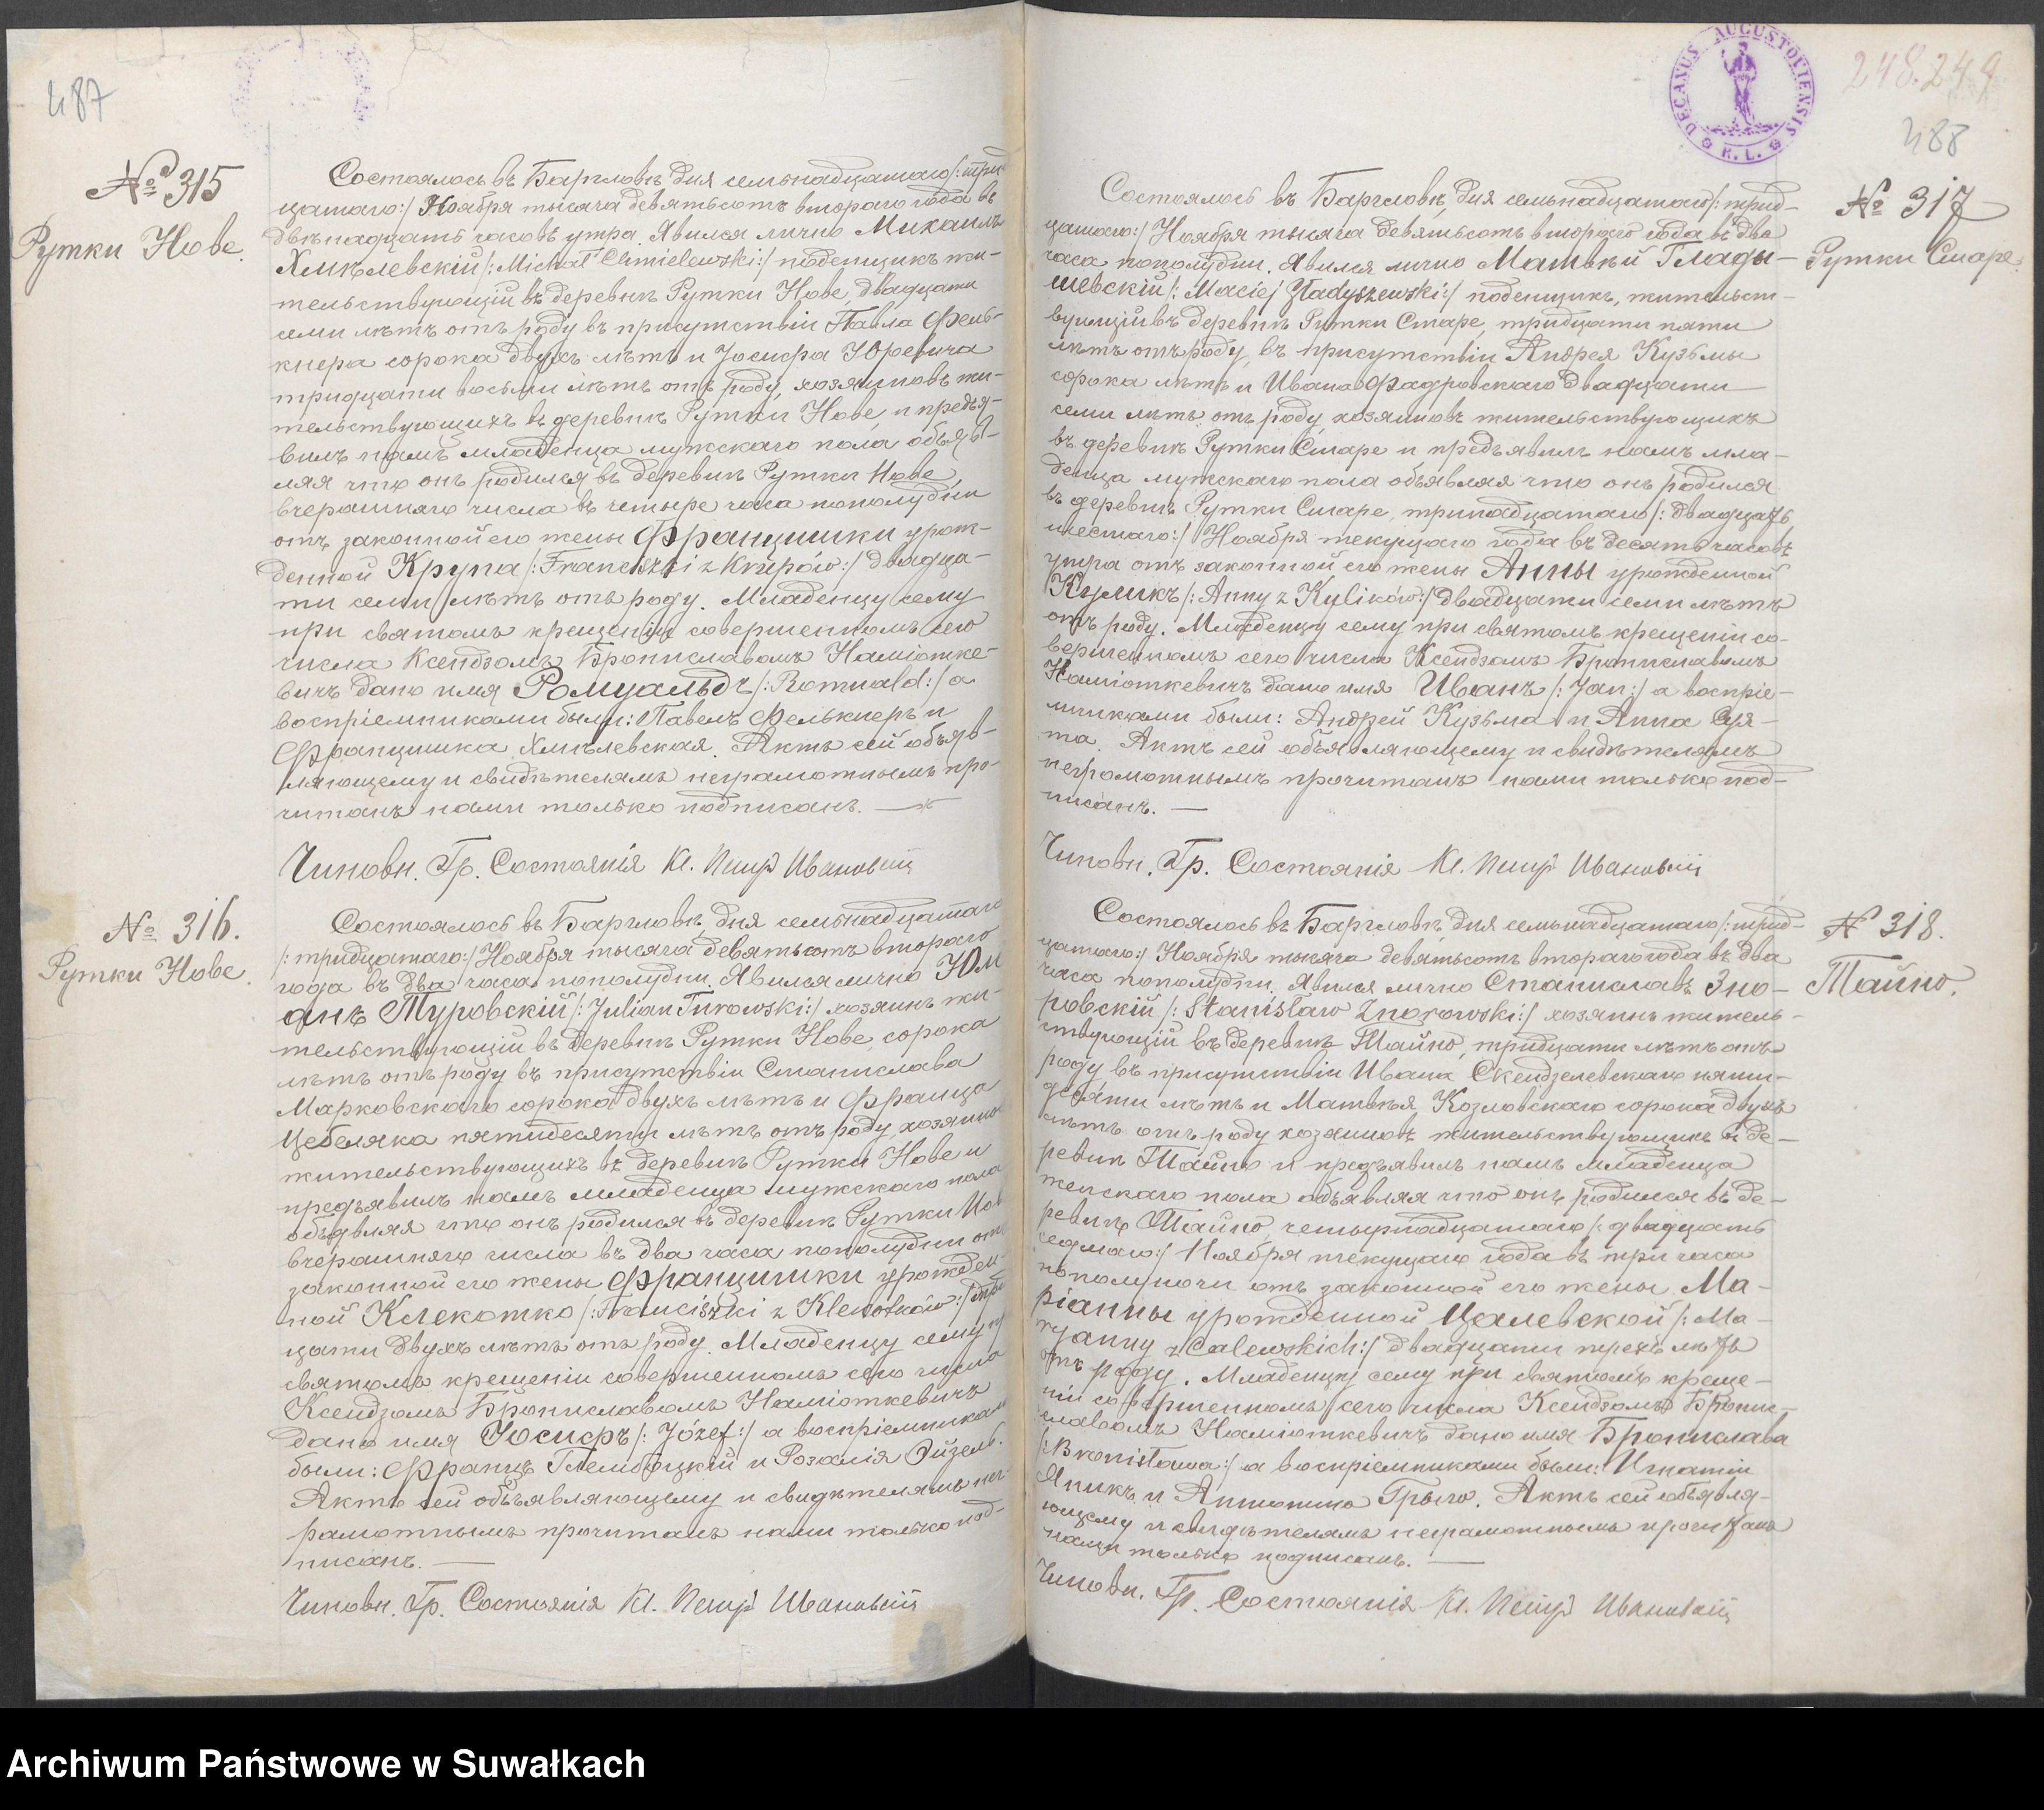 487
№ 315
Рутки Нове.
Состоялось въ Баргловѣ дня семьнадцатаго /: трид-
цатаго :/ Ноября тысяча девятьсотъ второго года въ
двѣнадцать часовъ утра. Явился лично Михаилъ
Хмѣлевскій /: Michał Chmielewski :/ поденщикъ жи-
тельствующій въ деревнѣ Рутки Нове, двадцати
семи лѣтъ отъ роду въ присутствіи Павла Фель-
кнера сорока двухъ лѣтъ и Іосифа Юревича
тридцати восьми лѣтъ отъ роду, хозяиновъ жи-
тельствующихъ въ деревнѣ Рутки Нове, и предъя-
вилъ намъ младенца мужскаго пола объяв-
ляя что онъ родился въ деревнѣ Рутки Нове,
вчерашняго числа въ четыре часа пополудни
отъ законной его жены Францишки урож-
денной Крупа /: Franciszki z Krupów :/ двадца-
ти семи лѣтъ отъ роду. Младенцу сему
при святомъ крещеніи совершенномъ сего
числа Ксендзомъ Брониславомъ Наміотке-
вичъ дано имя Ромуальдъ /: Romuald :/ а
воспріемниками были: Павелъ Фелькнеръ и
Францишка Хмѣлевская. Актъ сей объяв-
ляющему и свидѣтелямъ неграмотнымъ про-
читанъ нами только подписанъ. —
Чиновн. Гр. Состоянія Кс. Петръ Ивановскій
№ 316.
Рутки Нове.
Состоялось въ Баргловѣ, дня семьнадцатаго
/: тридцатаго :/ Ноября тысяча девятьсотъ второго
года въ два часа пополудни. Явился лично Юлі
анъ Туровскій /: Julian Turowski :/ хозяинъ жи-
тельствующій въ деревнѣ Рутки Нове, сорока
лѣтъ отъ роду въ присутствіи Станислава
Марковскаго сорока двухъ лѣтъ и Франца
Цебеляка пятидесяти лѣтъ отъ роду, хозяинов
жительствующихъ въ деревнѣ Рутки Нове и
предъявилъ намъ младенца мужскаго пола
объявляя что онъ родился въ деревнѣ Рутки Нов
вчерашняго числа въ два часа пополудни отъ
законной его жены Францишки урожден-
ной Клекотко /: Franciszki z Klekotków :/ трид
цати двухъ лѣтъ отъ роду. Младенцу сему пр
святомъ крещеніи совершенномъ сего числа
Ксендзомъ Брониславомъ Наміоткевичъ
дано имя Іосифъ /: Józef :/ а воспріемниками
были: Францъ Глембоцкій и Розалія Эйзель.
Актъ сей объявляющему и свидѣтелямъ нег-
рамотнымъ прочитанъ нами только под-
писанъ. —
Чиновн. Гр. Состоянія Кс. Петръ Ивановскій
DECANUS AUGUSTOVIENSIS R. L.
248.249
488
№ 317
Рутки Старе.
Состоялось въ Баргловѣ, дня семьнадцатаго /: трид-
цатаго :/ Ноября тысяча девятьсотъ второго года въ два
часа пополудни. Явился лично Матвѣй Глады-
шевскій /: Maciej Gładyszewski :/ поденщикъ, жительст-
вующій въ деревнѣ Рутки Старе, тридцати пяти
лѣтъ отъ роду, въ присутствіи Андрея Кузьмы
сорока лѣтъ и Ивана Фадровскаго двадцати
семи лѣтъ отъ роду, хозяиновъ жительствующихъ
въ деревнѣ Рутки Старе и предъявилъ намъ мла-
денца мужскаго пола объявляя что онъ родился
въ деревнѣ Рутки Старе, тринадцатаго /: двадцать
шестаго :/ Ноября текущаго года въ десять часовъ
утра отъ законной его жены Анны урожденной
Куликъ /: Anny z Kulików :/ двадцати семи лѣтъ
отъ роду. Младенцу сему при святомъ крещеніи со-
вершенномъ сего числа Ксендзомъ Брониславомъ
Наміоткевичъ дано имя Иванъ /: Jan :/ а воспріе-
мниками были: Андрей Кузьма и Анна Суя-
та. Актъ сей объявляющему и свидѣтелямъ
неграмотнымъ прочитанъ нами только под-
писанъ. —
Чиновн. Гр. Состоянія Кс. Петръ Ивановскій
№ 318.
Тайно.
Состоялось въ Баргловѣ, дня семьнадцатаго /: трид-
цатаго :/ Ноября тысяча девятьсотъ второго года въ два
часа пополудни. Явился лично Станиславъ Зно-
ровскій /: Stanisław Znorowski :/ хозяинъ житель-
ствующій въ деревнѣ Тайно, тридцати лѣтъ отъ
роду въ присутствіи Ивана Скендзелевскаго пяти-
десяти лѣтъ и Матвѣя Козловскаго сорока двухъ
лѣтъ отъ роду хозяиновъ жительствующихъ въ де-
ревнѣ Тайно и предъявилъ намъ младенца
женскаго пола объявляя что онъ родился въ де-
ревнѣ Тайно, четырнадцатаго /: двадцать
седмаго :/ Ноября текущаго года въ три часа
пополуночи отъ законной его жены Ма-
ріанны урожденной Цалевской /: Ma-
ryanny z Calewskich :/ двадцати трехъ лѣтъ
отъ роду. Младенцу сему при святомъ креще-
ніи совершенномъ сего числа Ксендзомъ Брони-
славомъ Наміоткевичъ дано имя Бронислава
/: Bronisława :/ а воспріемниками были: Игнатій
Яникъ и Антонина Грыго. Актъ сей объявля-
ющему и свидѣтелямъ неграмотнымъ прочитанъ
нами только подписанъ. —
Чиновн. Гр. Состоянія Кс. Петръ Ивановскій
Archiwum Państwowe w Suwałkach